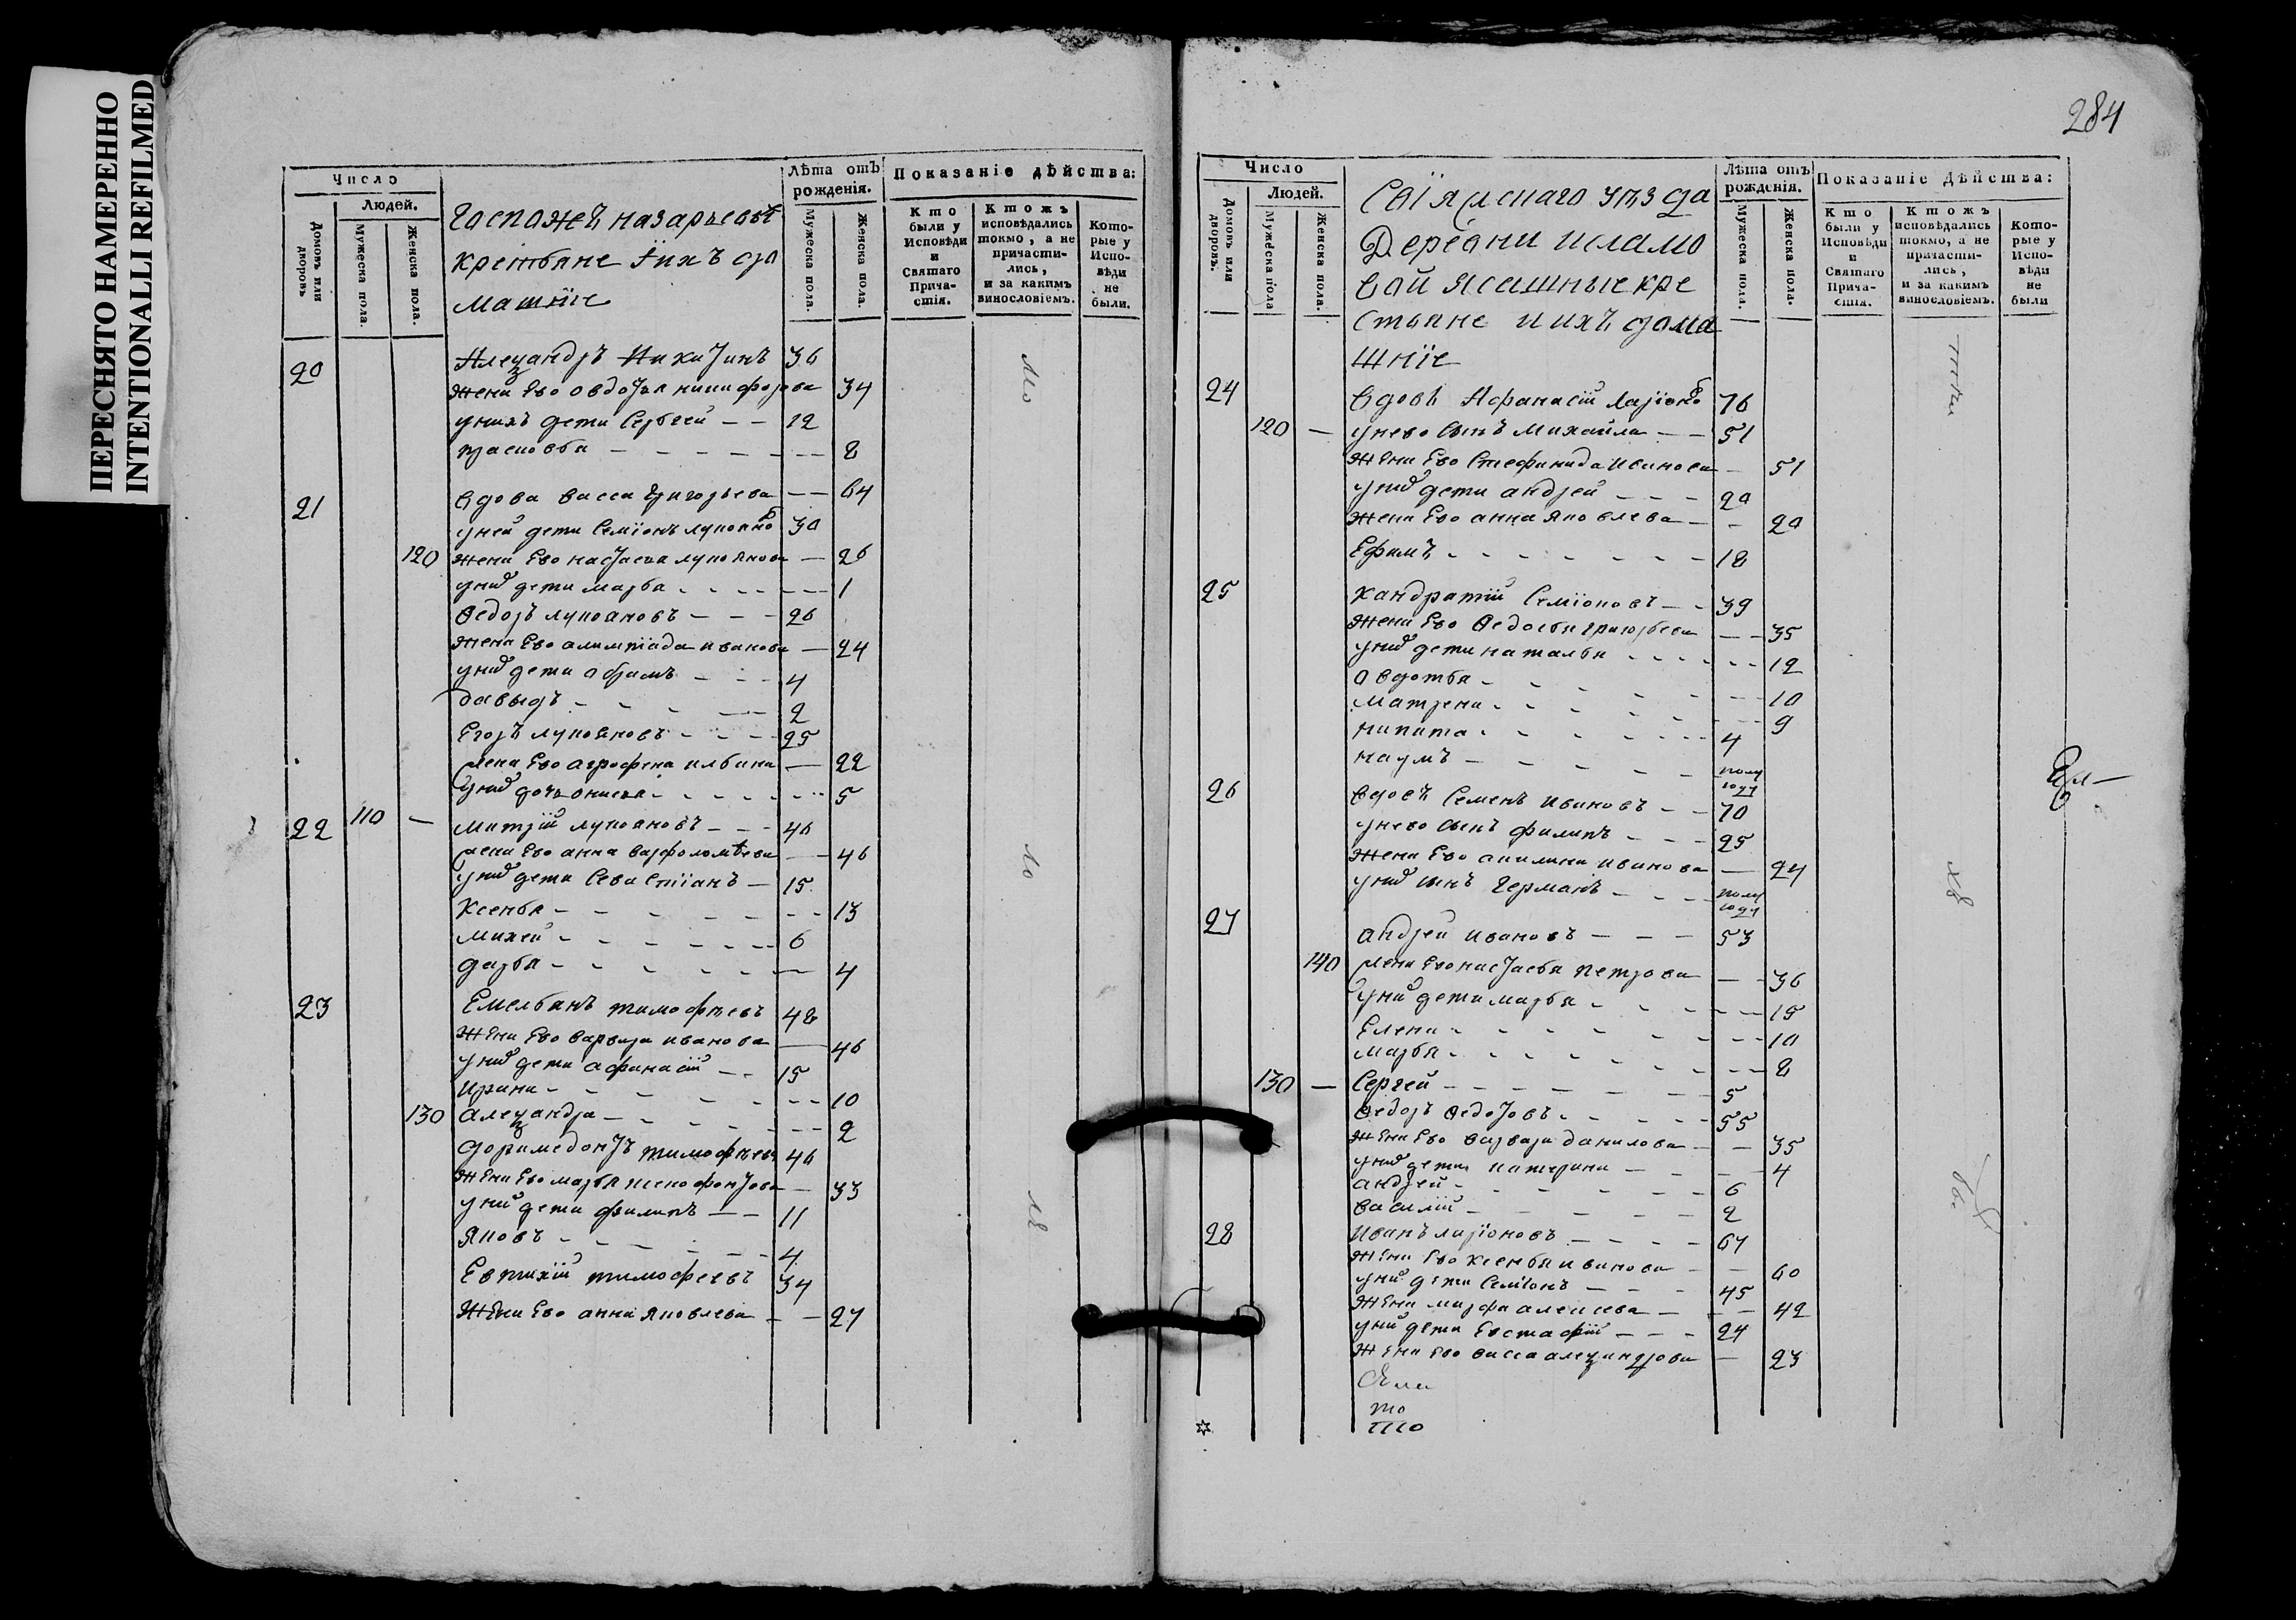 ПЕРЕСНЯТО НАМЕРЕННО
INTENTIONALLI REFILMED
Число
Людей.
Домовъ или дворовъ
Мужеска пола.
Женска пола.
Госпожей назарьевы
крестьяне ихъ до
машніе
Лѣта отъ рожденія.
Мужеска пола.
Женска пола.
Показаніе дѣйства:
Кто были у Исповѣди и Святаго Прича-стія.
Ктожъ исповѣдались токмо, а не причасти-лись, и за какимъ винословіемъ.
Кото-рые у Испо-вѣди не были.
20 Алеѯандръ Никитинъ 36
жена Ево овдотья никифорова 34
унихъ дети Сергеей 12
прасковья 8
21 вдова васса григорьева 64
уней дети Семіонъ лукояновъ 30
120 жена Ево настасья лукоянова 26
уних дети марья 1
Ѳедоръ лукояновъ 26
жена Ево алимпіада иванова 24
уних дети абрамъ 4
давыдъ 2
Егоръ лукояновъ 25
жена Ево агрофена ильина 22
уних дочь анисья 5
22 110 — митрій лукояновъ 46
жена Ево анна варфоломѣева 46
уних дети Севастіанъ 15
Ксенья 13
михей 6
дарья 4
23 Емельянъ тимофѣевъ 48
жена Ево варвара иванова 46
уних дети афанасій 15
Ирина 10
130 алеѯандра 2
доримедонтъ тимофѣевъ 46
жена Ево марья ксенофонтова 33
уних дети филипъ 11
Яковъ 4
Евтихій тимофеевъ 34
жена Ево анна Яковлева 27
284
Число
Людей.
Домовъ или дворовъ.
Мужеска пола
Женска пола.
Свіяжскаго уѣзда
Деревни исламо
вой ясашныекре
стьяне и ихъ дома
шніе
Лѣта отъ рожденія.
Мужеска пола.
Женска пола.
Показаніе дѣйства:
Кто были у Исповѣди и Святаго Прича-стія.
Ктожъ исповѣдались токмо, а не причасти-лись, и за какимъ винословіемъ.
Кото-рые у Испо-вѣди не были
24 вдовъ Афанасій Ларіоновъ 76
120 — унево сынъ михайла 51
жена Ево Стефанида Иванова 51
уних дети андрей 20
жена Ево анна Яковлева 20
Ефимъ 18
25 Кандратій Семіоновъ 39
жена Ево Ѳедосья григорьева 35
уних дети наталья 12
авдотья 10
матрена 9
никита 4
наумъ полугоду
26 вдовъ Семенъ Ивановъ 70
унево сынъ филипъ 25
жена Ево акилина иванова 24
уних сынъ Германъ полугоду
27 андрей ивановъ 53
140 жена Ево настасья петрова 36
уних дети марья 15
Елена 10
марья 8
130 — Сергей 5
Ѳедоръ Ѳедотовъ 55
жена Ево варвара данилова 35
уних дети катерина 4
андрей 6
василій 2
28 Иванъ ларіоновъ 67
жена Ево ксенья иванова 60
уних дети Семіонъ 45
жена марфа алексева 42
уних дети Евстафій 24
жена Ево васса алеѯандрова 23
то